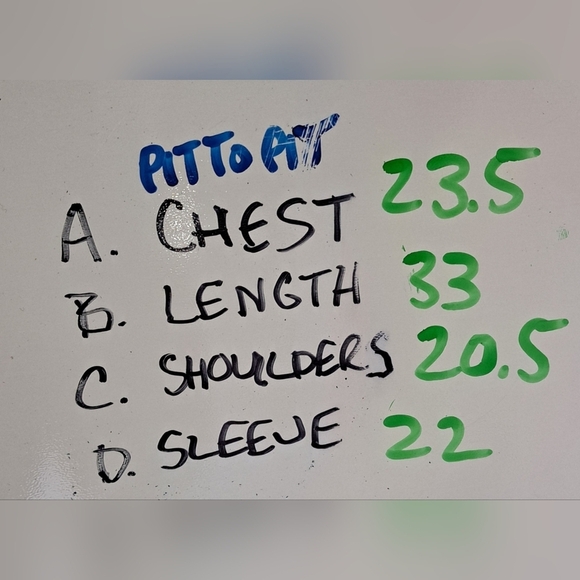 PIT TO PIT
A. CHEST 23.5
B. LENGTH 33
C. SHOULDERS 20.5
D. SLEEVE 22